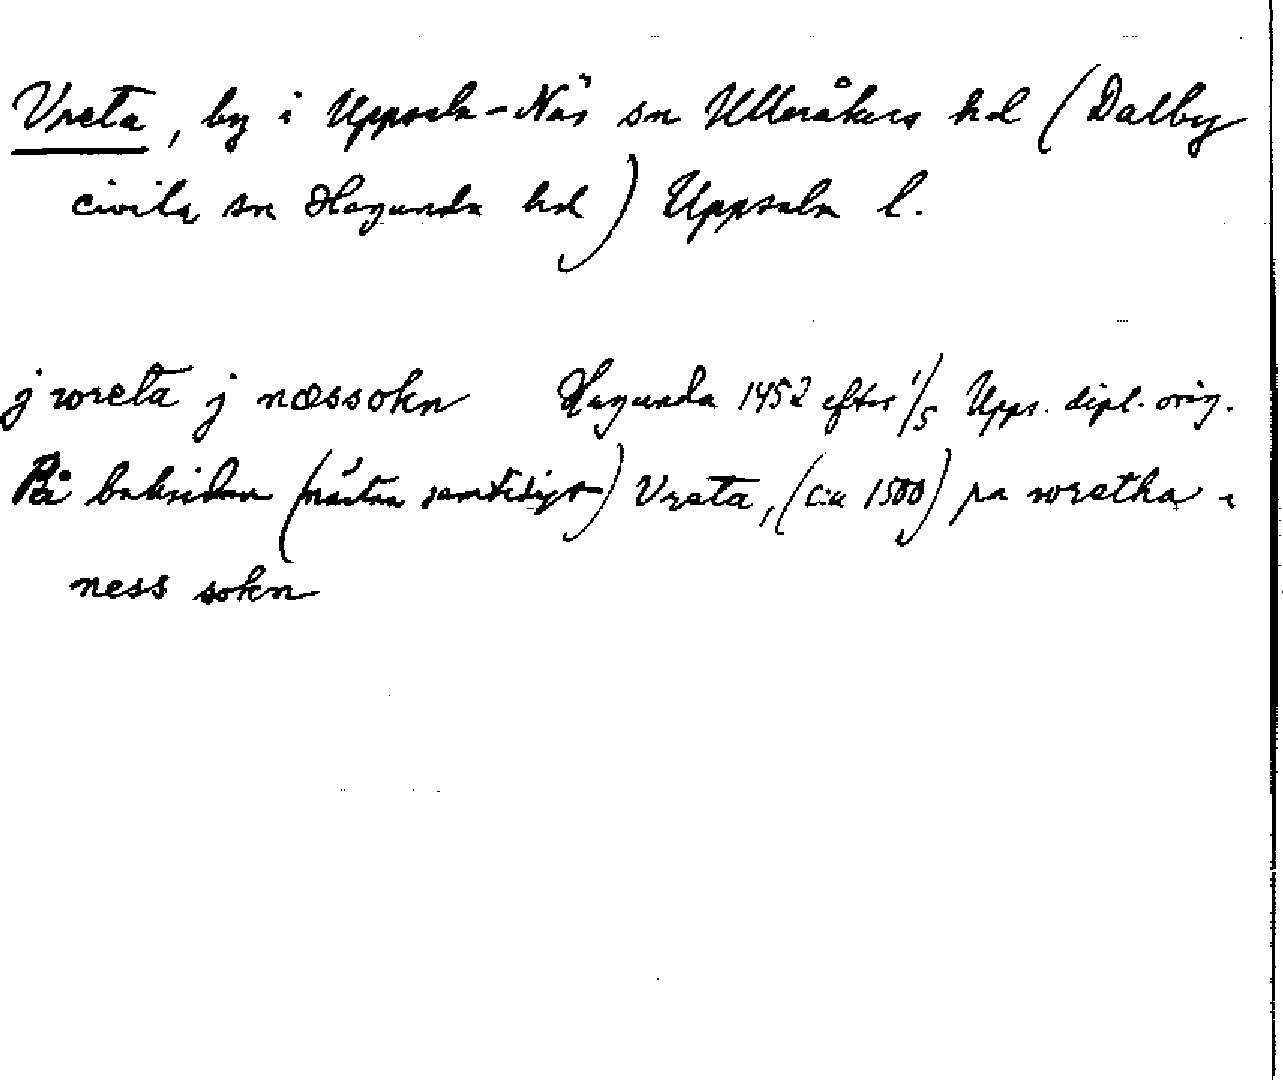 Vreta, by i Uppsala-Näs sn Ulleråkers hd (Dalby
civila sn Hagunda hd) Uppsala l.
j wreta j næssokn Hagunda 1452 efter 1/5 Upps. dipl. orig.
På baksidan (nästan samtidigt) Vreta, (c:a 1500) pa wretha i
ness sokn